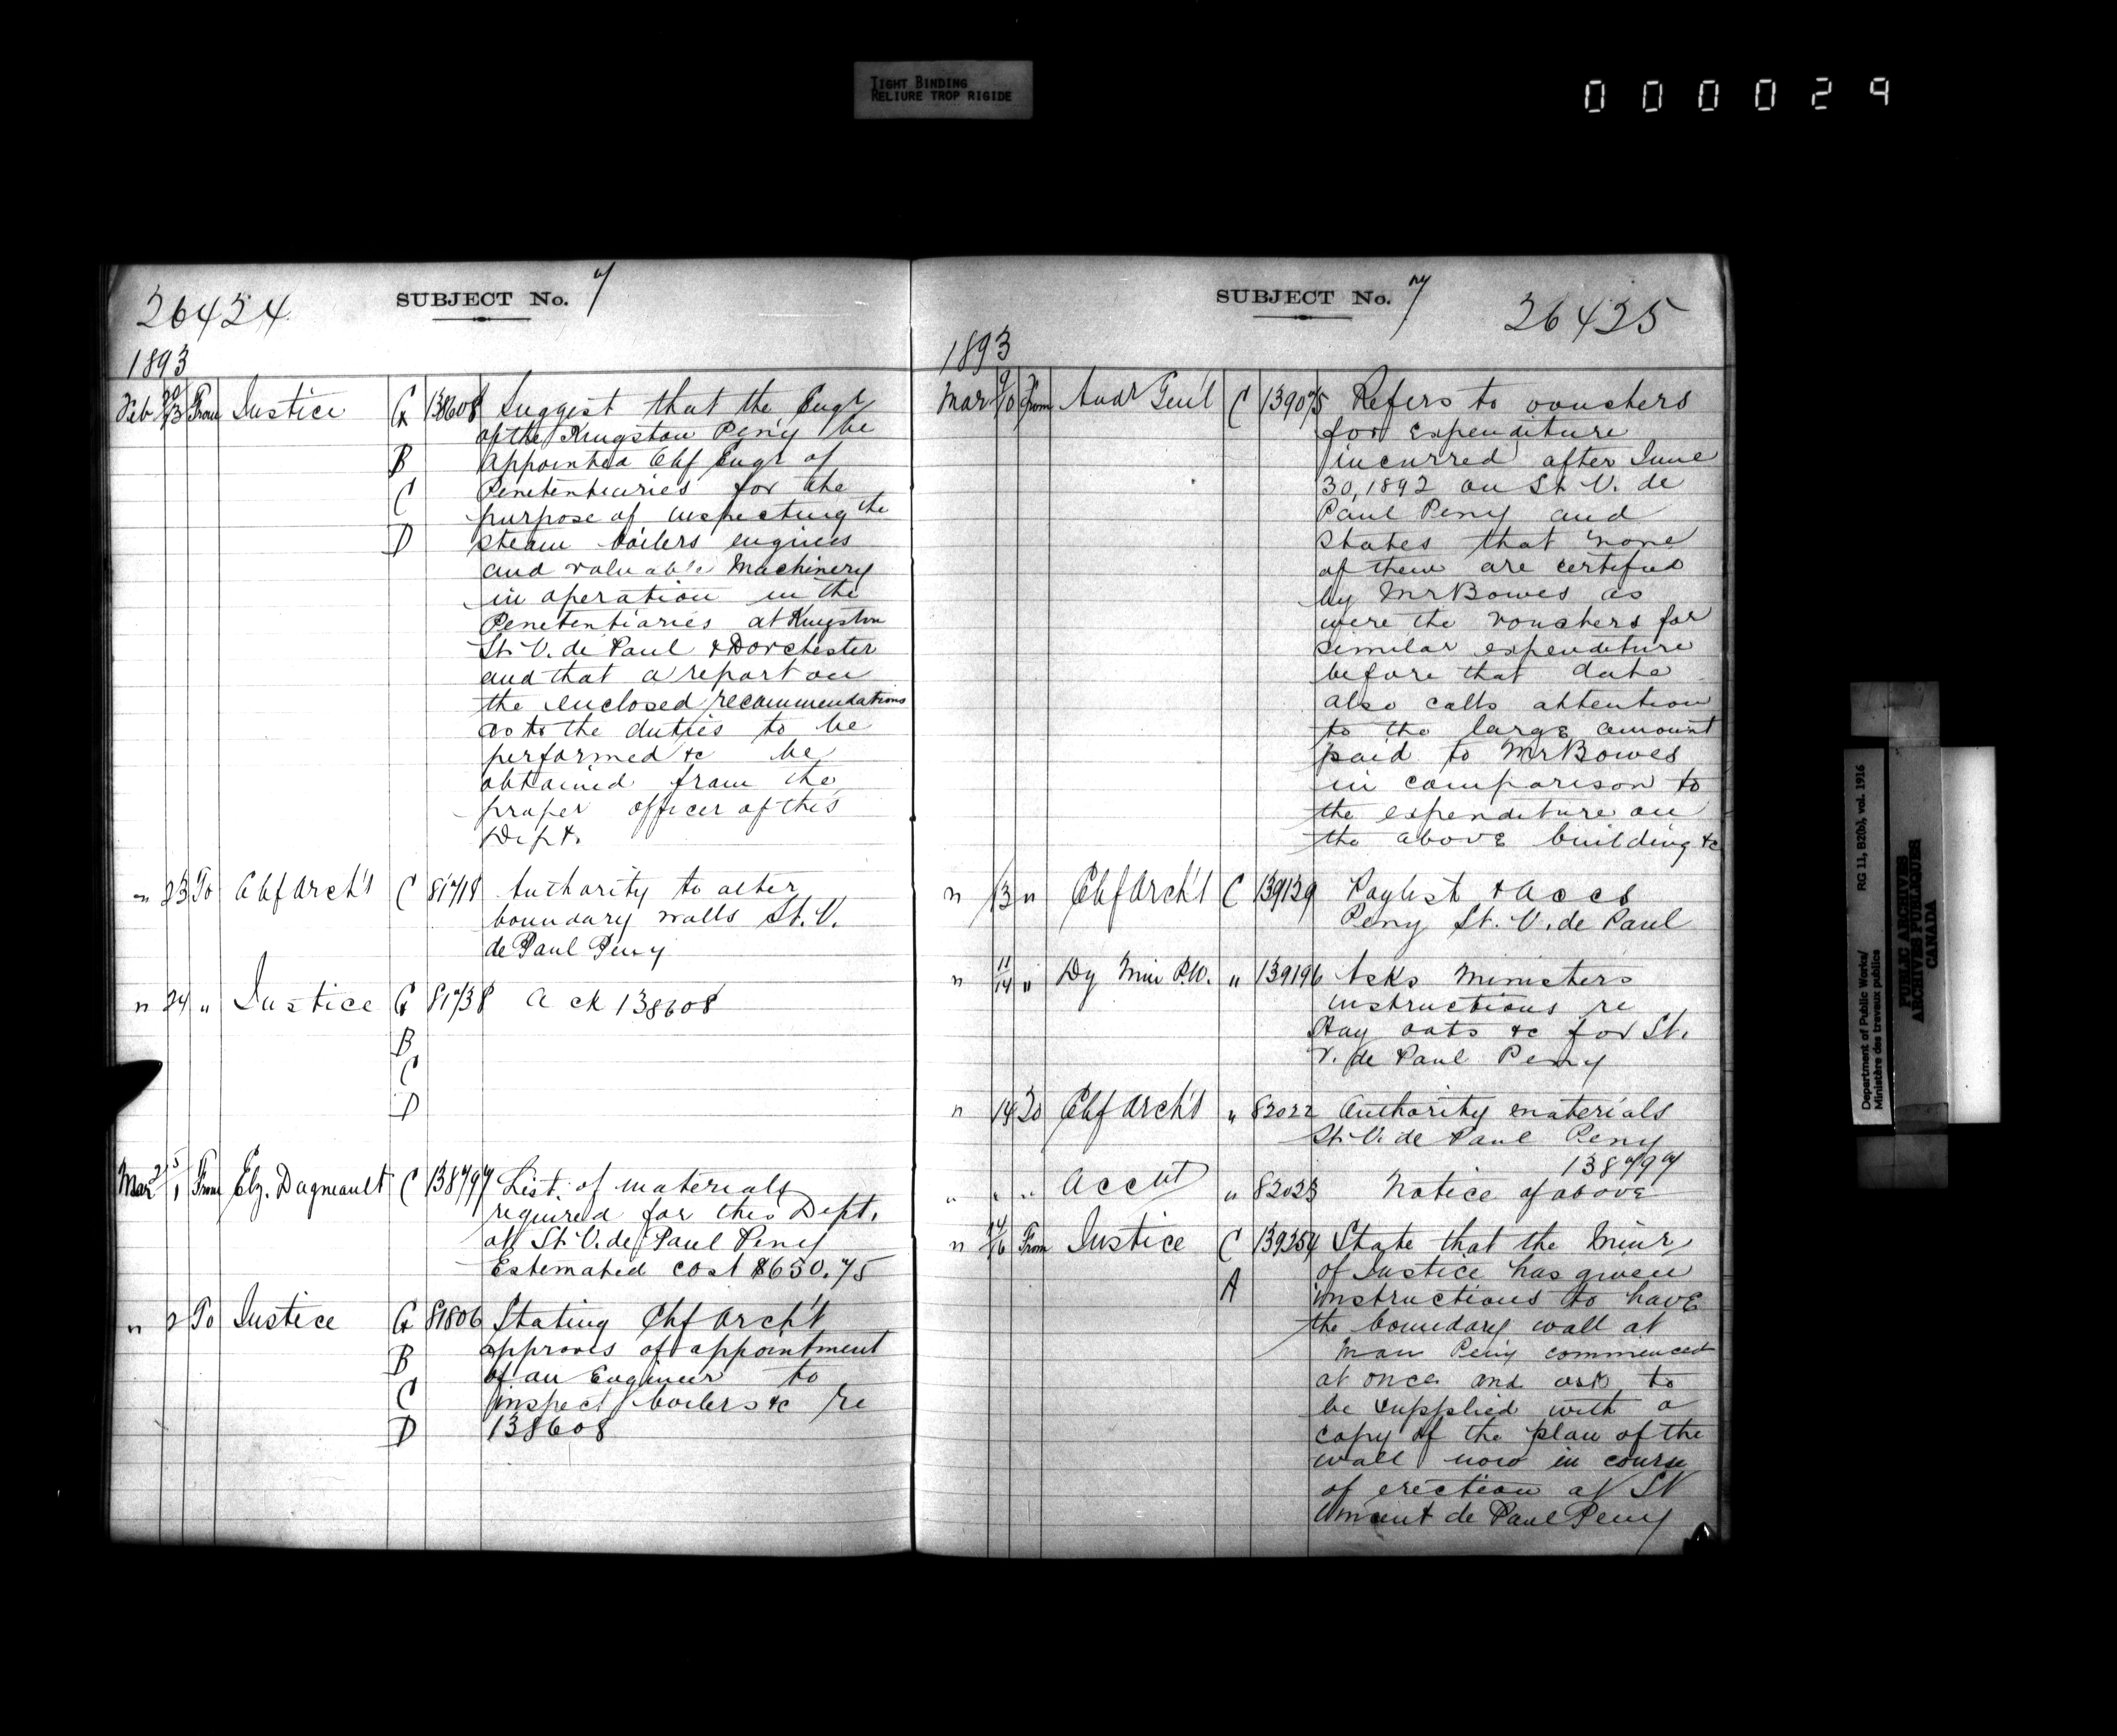 TIGHT BINDING
RELIURE TROP RIGIDE
000029
26424
SUBJECT No. 7
1893
Feb 20/23 From Justice G 138608 Suggest that the Engr
of the Kingston Peny be
B appointed Chf Engr of
Penetentiaries for the
C purpose of inspecting the
D steam boilers engines
and valuable Machinery
in operation in the
Penetentiaries at Kingston
St. V. de Paul & Dorchester
and that a report on
the enclosed recommendations
as to the duties to be
performed &c be
obtained from the
proper officer of this
Dept.
" 23 To Chf Arch't C 81718 Authority to alter
boundary walls St. V.
de Paul Peny
" 24 " Justice G 81738 Ack 138608
B
C
D
Mar 2/1 From Elz. Dagneault C 138797 List of materials
required for this Dept.
at St. V. de Paul Peny
Estemated cost $650.75
" 2 To Justice G 81806 Stating Chf Arch't
B approves of appointment
of an Engineer to
C inspect boilers &c re
D 138608
SUBJECT No. 7
26425
1893
Mar 9/10 From Aud Gen'l C 139075 Refers to vouchers
for expenditure
incurred after June
30, 1892 on St. V. de
Paul Peny and
states that none
of them are certified
by Mr Bowes as
were the vouchers for
similar expenditure
before that date
also calls attention
to the large amount
paid to Mr Bowes
in comparison to
the expenditure on
the above building &c
" 13 " Chf Arch't C 139129 Paylist & Accs
Peny St. V. de Paul
" 11/14 " Dy Min P.W. " 139196 Asks Ministers
instructions re
Hay oats &c for St.
V. de Paul Peny
" 14 To Chf Arch't " 82022 Authority materials
St. V. de Paul Peny
138797
" " " Acct " 82023 Notice of above
" 14/16 From Justice C 139254 State that the Minr
of Justice has given
A instructions to have
the boundary wall at
Man Peny commenced
at once and ask to
be supplied with a
copy of the plan of the
wall now in course
of erection at St
Vincent de Paul Peny
Department of Public Works/
Ministère des travaux publics
RG 11, B2(b), vol. 1916
PUBLIC ARCHIVES
ARCHIVES PUBLIQUES
CANADA